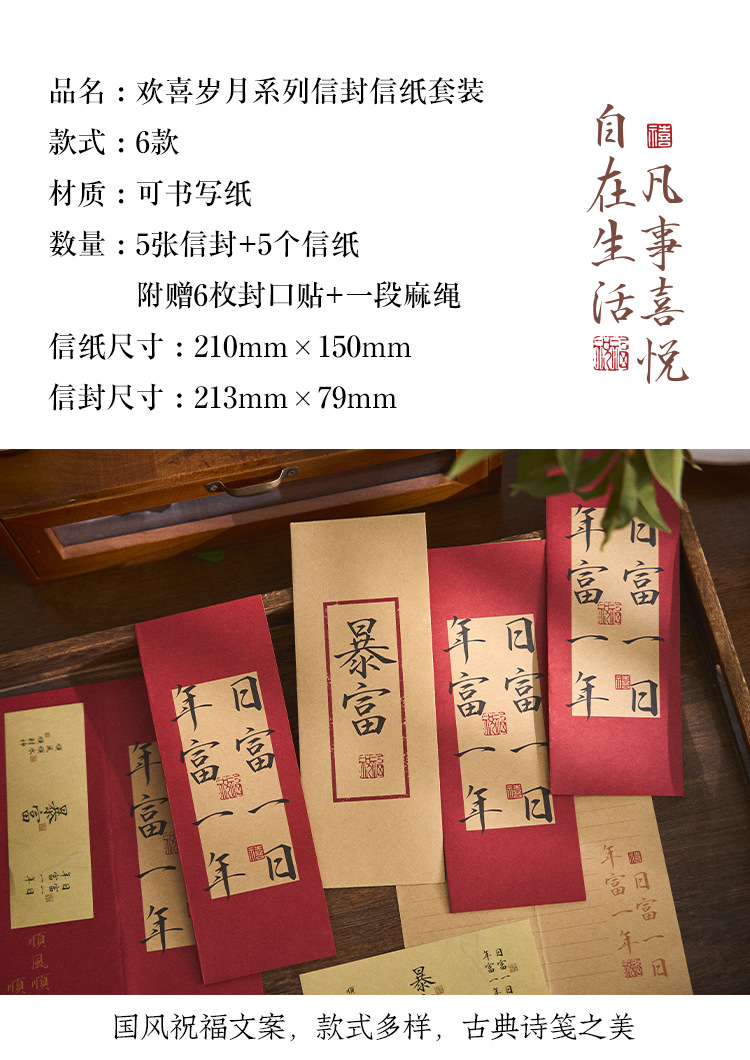 品名：欢喜岁月系列信封信纸套装
款式：6款
材质：可书写纸
数量：5张信封+5个信纸
附赠6枚封口贴+一段麻绳
信纸尺寸：210mm×150mm
信封尺寸：213mm×79mm
禧
凡事喜悦
自在生活
日富一日
年富一年
暴富
日富一日
年富一年
日富一日
年富一年
年富一年
暴富
日富一日
年富一年
順風順
順
日富一日
年富一年
暴富
日富一日
年富一年
国风祝福文案，款式多样，古典诗笺之美